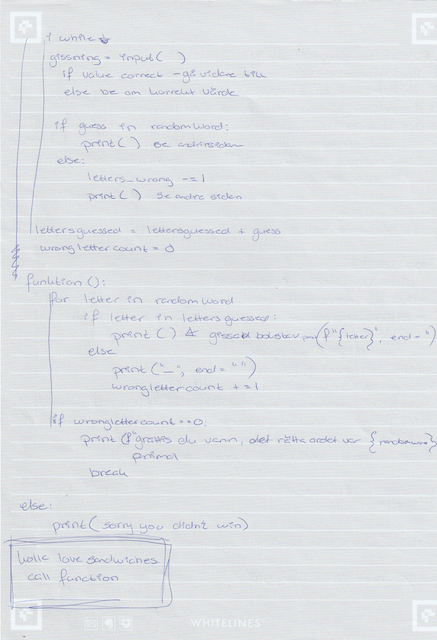 i while
gissning = input( )
if value correct - gå vidare till
else be om korrekt värde
if guess in randomword:
print( ) se andra sidan
else:
letters_wrong -= 1
print( ) se andra sidan
lettersguessed = lettersguessed + guess
wronglettercount = 0
funktion ():
for letter in randomword
if letter in lettersguessed:
print ( ) gissad bokstav (f"{letter}", end = "
else
print ("_", end = " ")
wronglettercount += 1
if wronglettercount == 0:
print (f"grattis du vann, det rätta ordet var {randomword}
break
else:
print( sorry you didn't win)
kolla love sandwiches
call function
WHITELINES